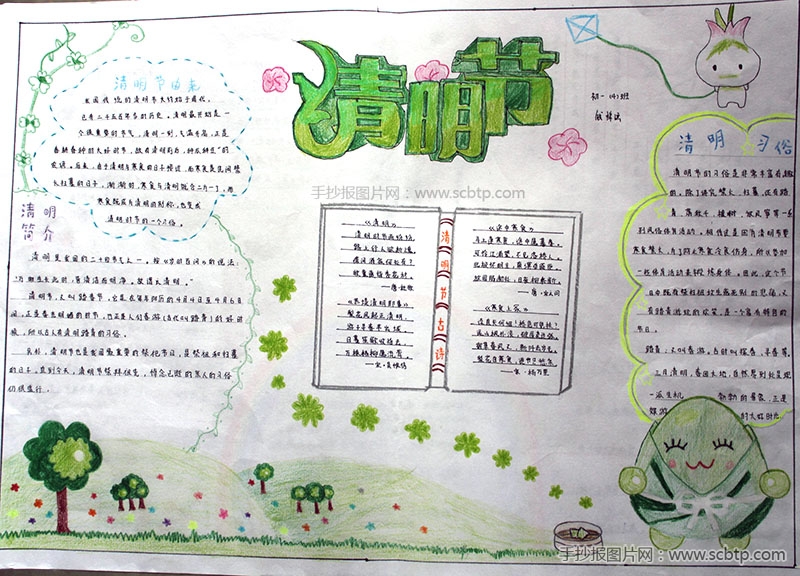 清明节
初一(4)班
清明节由来
我国传统的清明节大约始于周代,
已有二千五百多年的历史。清明最开始是一
个很重要的节气,清明一到,气温升高,正是
春耕春种的大好时节,故有"清明前后,种瓜种豆"的
农谚。后来,由于清明与寒食的日子接近,而寒食是民间禁
火扫墓的日子,渐渐的,寒食与清明就合二为一了,而
寒食既成为清明的别称,也变成
清明时节的一个习俗。
清明
简介
清明是我国的二十四节气之一。按《岁时百问》的说法:
"万物生长此时,皆清洁而明净。故谓之清明。"
清明节,又叫踏青节,它是在每年阳历的4月4日至4月6日
间,正是春光明媚的时节,也正是人们春游(古代叫踏青)的好时
候,所以古人有清明踏青的习俗。
此外,清明节也是我国最重要的祭祀节日,是祭祖和扫墓
的日子。直到今天,清明节祭拜祖先,悼念已逝的亲人的习俗
仍很盛行。
清明节古诗
《清明》
清明时节雨纷纷,
路上行人欲断魂。
借问酒家何处有?
牧童遥指杏花村。
——唐·杜牧
《苏堤清明即事》
梨花风起正清明,
游子寻春半出城。
日暮笙歌收拾去,
万株杨柳属流莺。
——宋·吴惟信
《途中寒食》
马上逢寒食,途中属暮春。
可怜江浦望,不见洛桥人。
北极怀明主,南溟作逐臣。
故园肠断处,日夜柳条新。
——唐·宋之问
《寒食上冢》
迳直夫何细!桥危可免扶?
远山枫外淡,破屋麦边孤。
宿草春风又,新阡去岁无。
梨花自寒食,进节只愁余。
——宋·杨万里
清明 习俗
清明节的习俗是非常丰富有趣
的,除了讲究禁火、扫墓,还有踏
青、荡秋千、植树、放风筝等一系
列风俗体育活动。相传这是因为清明节要
寒食禁火,为了防止寒食冷餐伤身,所以参加
一些体育活动来锻炼身体。因此,这个节
日中既有祭扫新坟生离死别的悲痛,又
有踏青游玩的欢笑,是一个富有特色的
节日。
踏青:又叫春游。古时叫探春、寻春等。
三月清明,春回大地,自然界到处呈现
一派生机 的景象,正是
郊游 的大好时光
手抄报图片网:www.scbtp.com
手抄报图片网:www.scbtp.com